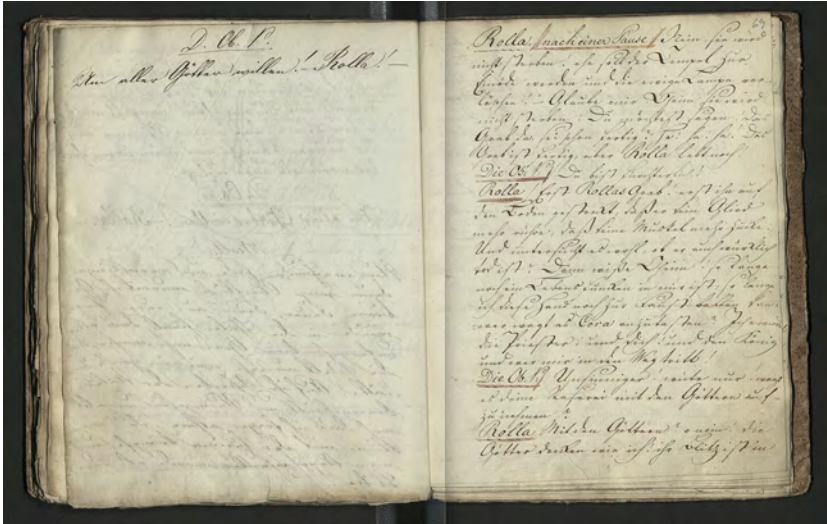 D. Ob. P.
Um aller Götter willen! – Rolla! –
69
Rolla. /nach einer Pause/ Nein, sie wird
nicht sterben! ehe soll der Tempel zur
Einöde werden und die ewige Lampe ver-
löschen! – Glaube mir Oheim sie wird
nicht sterben! Du wirst sagen, das
Grab da sei schon fertig? Ha! ha! ha! Das
Grab ist fertig, aber Rolla lebt noch!
Die Ob. P. Du bist fürchterlich!
Rolla. Erst Rollas Grab! erst ihn auf
den Boden gestreckt, daß er kein Glied
mehr rühre, daß keine Muskel mehr zucke.
Und untersucht es wohl, ob er auch würklich
tod ist! Denn wiße Oheim! so lange
noch ein Lebensfunken in mir ist, so lange
ich diese Hand noch zur Faust ballen kan,
wer wagt es Cora anzutasten?
die Priester! und dich! und den König
und wer mir in den Weg tritt!
Die Ob. P. Unsinniger!
es deine Raserei mit den Göttern auf
zu nehmen?
Rolla. Mit den Göttern? o nein! die
Götter denken wie ich! ihr Blitz ist in